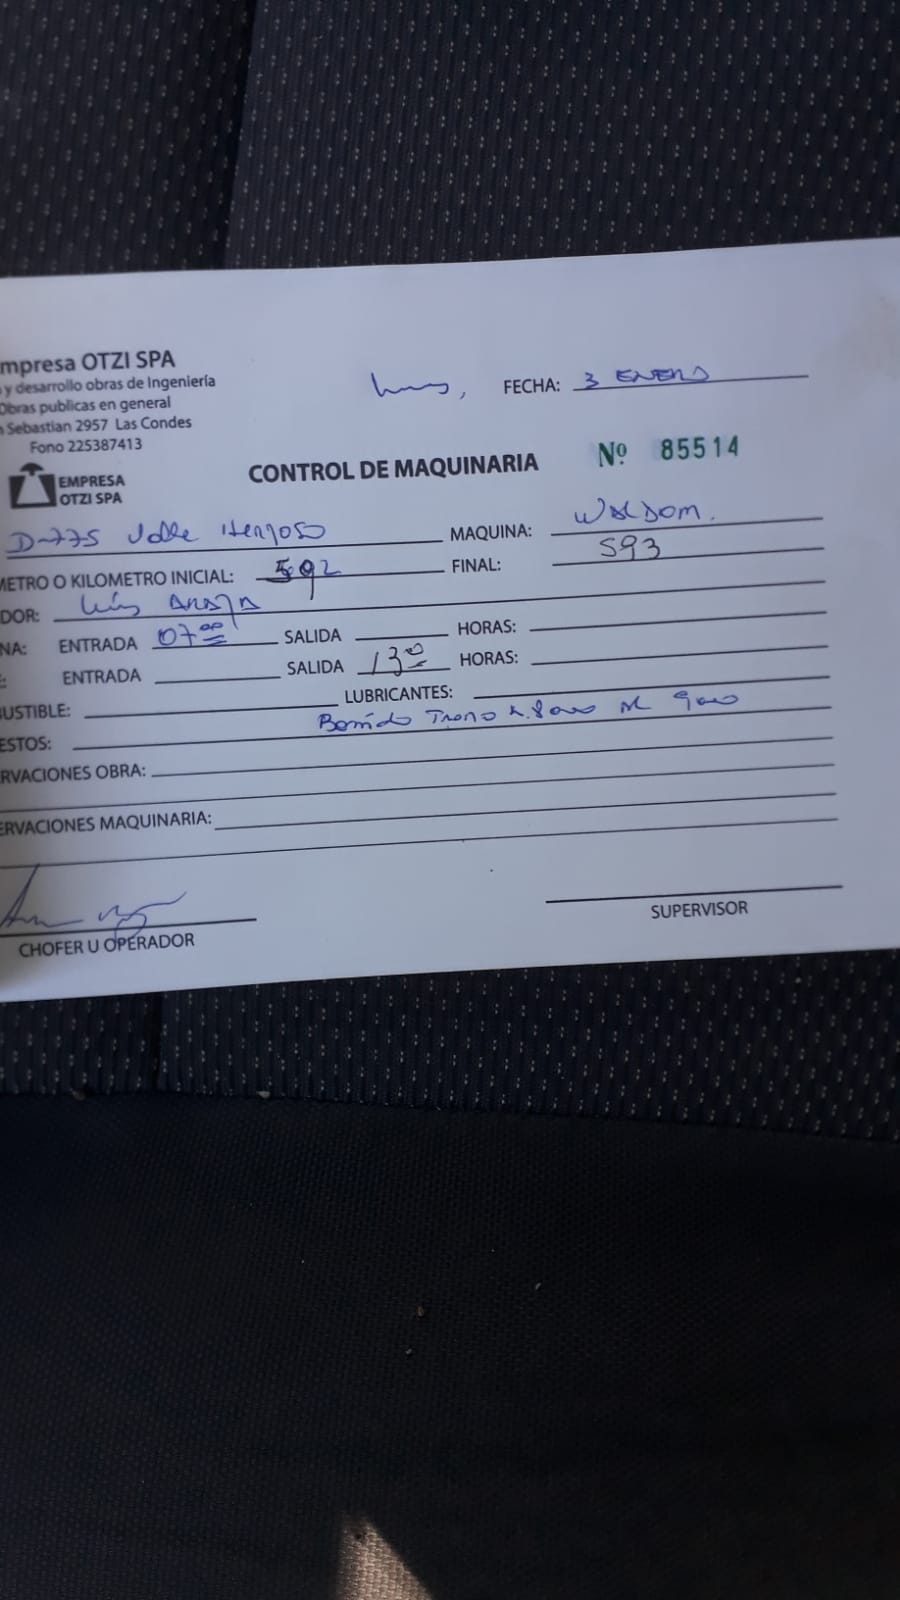 mpresa OTZI SPA
y desarrollo obras de Ingeniería
Obras publicas en general
Sebastian 2957 Las Condes
Fono 225387413
FECHA: 3 ENERO
EMPRESA
OTZI SPA
CONTROL DE MAQUINARIA
Nº 85514
D-775 Valle Hermoso MAQUINA: WALDOM.
METRO O KILOMETRO INICIAL: 592 FINAL: 593
DOR: Luis ARAYA
NA: ENTRADA 07 00 SALIDA HORAS:
E: ENTRADA SALIDA 13 00 HORAS:
USTIBLE: LUBRICANTES:
ESTOS: Barrido Tramo
RVACIONES OBRA:
ERVACIONES MAQUINARIA:
CHOFER U OPERADOR
SUPERVISOR